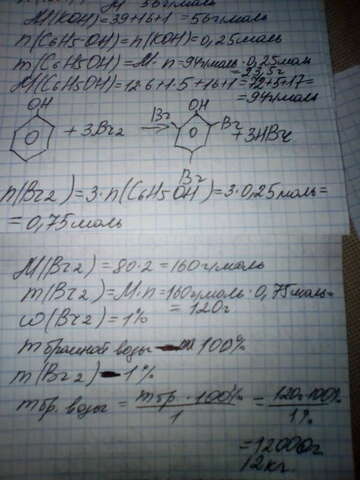 M(KOH)=39+16+1=56г/моль
n(C6H5OH)=n(KOH)=0,25моль
m(C6H5OH)=M·n=94г/моль·0,25моль
=23,5г
M(C6H5OH)=12·6+1·5+16+1=72+5+17=
=94г/моль
OH
+3Br2
OH
Br
Br
Br
+3HBr
n(Br2)=3·n(C6H5OH)=3·0,25моль=
=0,75моль
M(Br2)=80·2=160г/моль
m(Br2)=M·n=160г/моль·0,75моль=
=120г
w(Br2)=1%
m бромной воды - 100%
m(Br2) - 1%
m бр. воды = mбр.·100% / 1 = 120г·100% / 1%
=12000г
12кг.